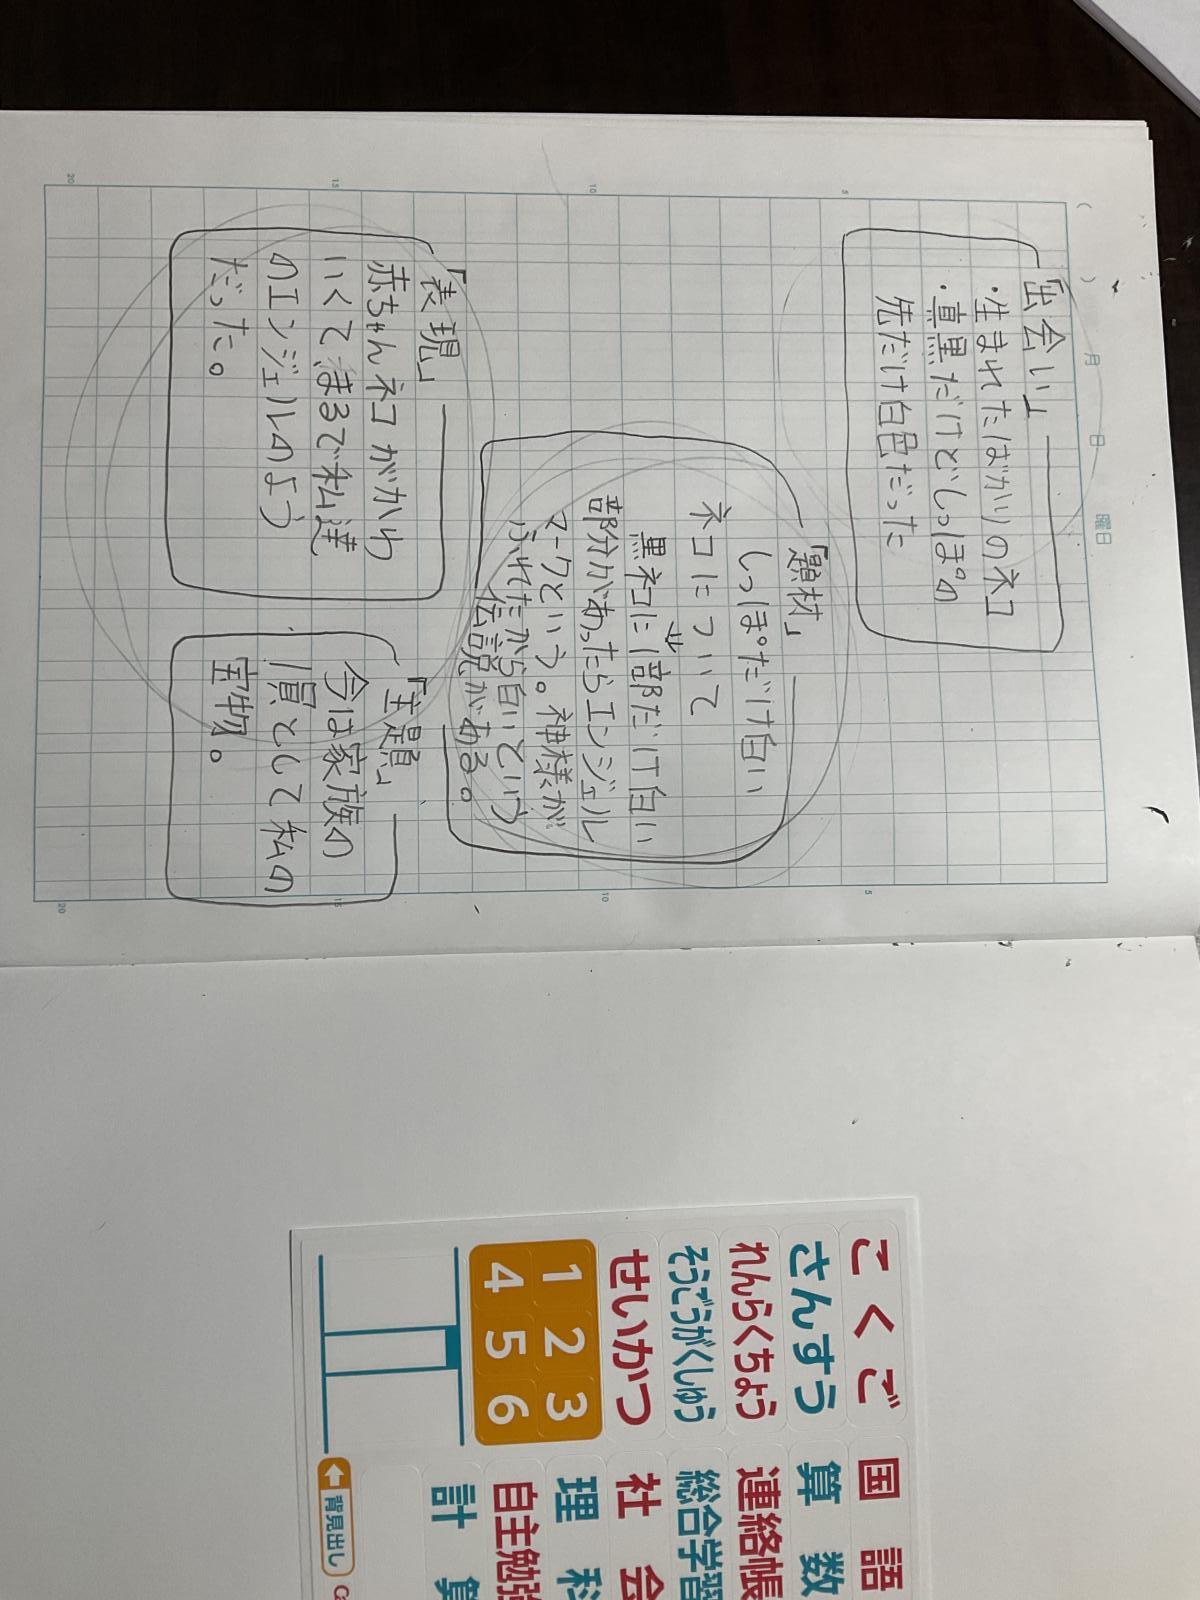 ( ) 月 日 曜日
「出会い」
・生まれたばかりのネコ
・真黒だけどしっぽの
先だけ白色だった
「題材」
しっぽだけ白い
ネコについて
黒ネコに1部だけ白い
部分があったらエンジェル
マークという。神様が
ふれたから白いという
伝説がある。
「表現」
赤ちゃんネコがかわ
いくてまるで私達
のエンジェルのよう
だった。
「主題」
今は家族の
1員として私の
宝物。
5
10
15
20
5
10
15
20
こくご
さんすう
れんらくちょう
そうごうがくしゅう
せいかつ
1 2 3
4 5 6
国語
算数
連絡帳
総合学習
社会
理科
自主勉強
計算
背見出し